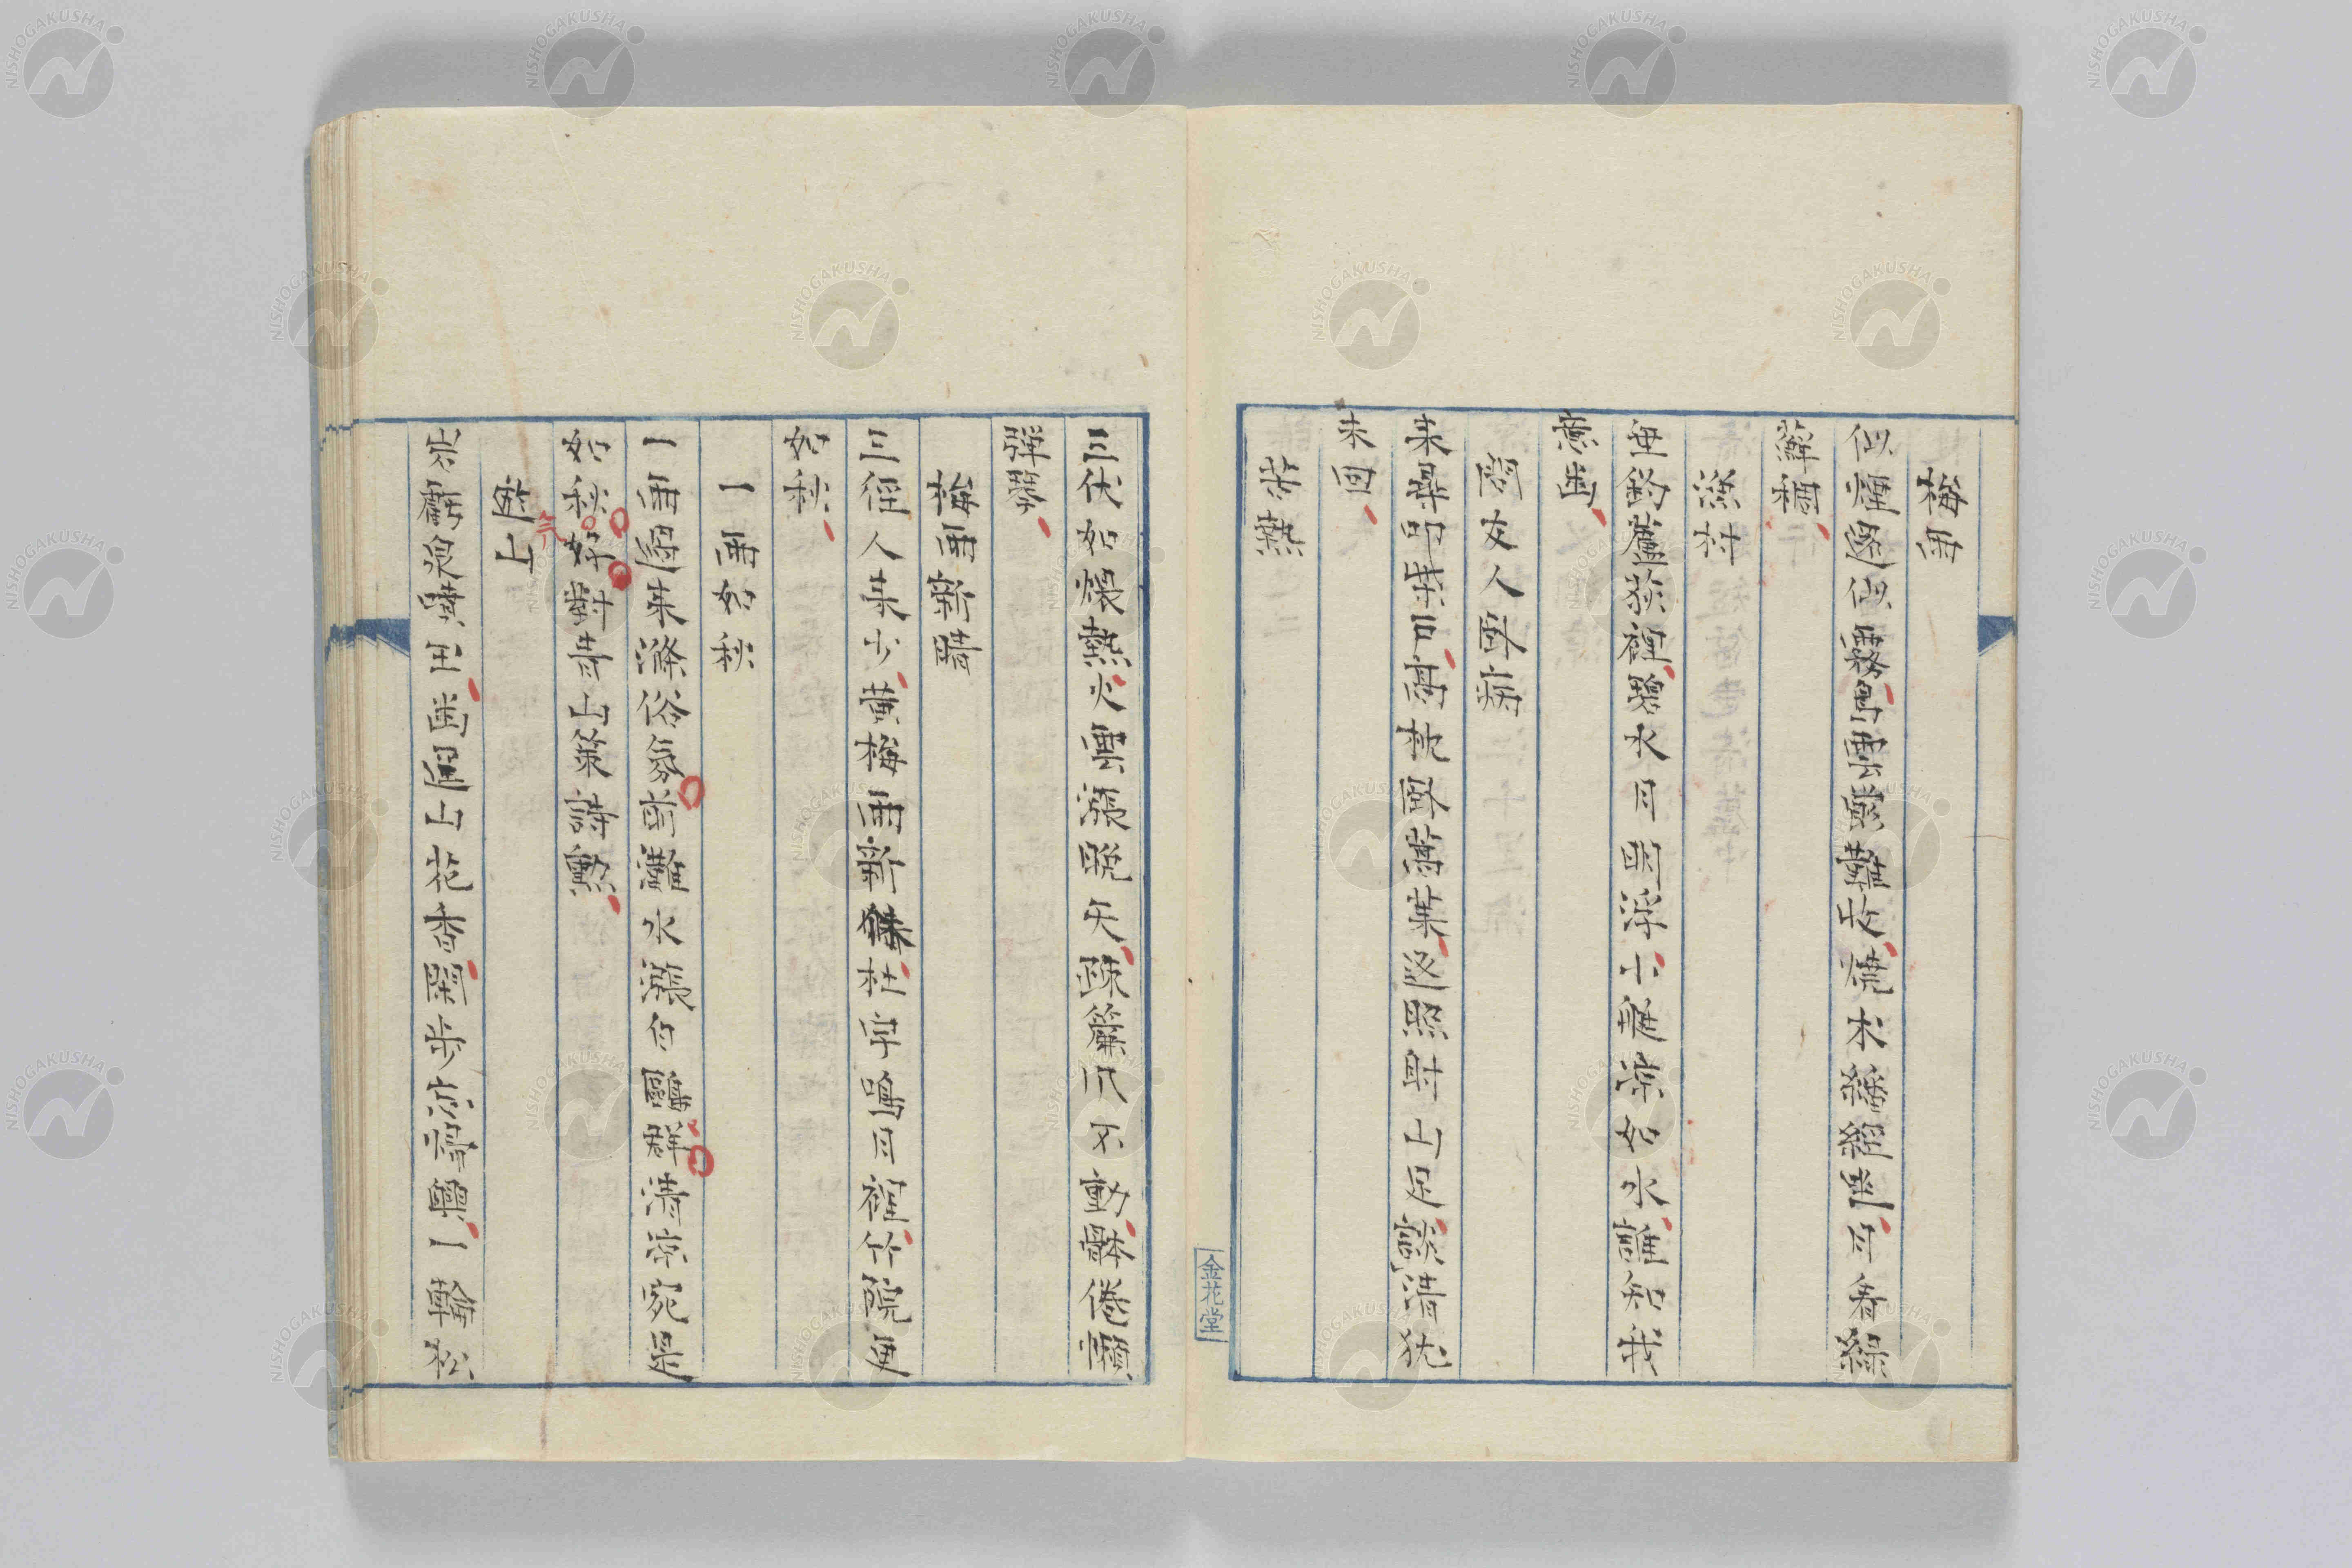 梅雨
似煙還似霧黒雲濃難收焼木午看緑
蘇稠
漁村
垂釣蘆荻裡碧水月明浮小艇涼如水誰知我
意幽
問友人臥病
来尋叩柴口高枕臥返照射山足談清猶
未回
苦熱
金花堂
三伏如燬熱火雲漲晩天疎簾风不動倦懶
彈琴
梅雨新晴
三径人来少黄梅雨新杜宇鳴月裡竹院更
如秋
一雨如秋
一雨過来滌俗氛前灘水漲白鷗群清凉宛是
如秋好對青山策詩勲
气
遊山
岩罅泉噴玉幽逕山花香閑歩忘帰興一鞭松